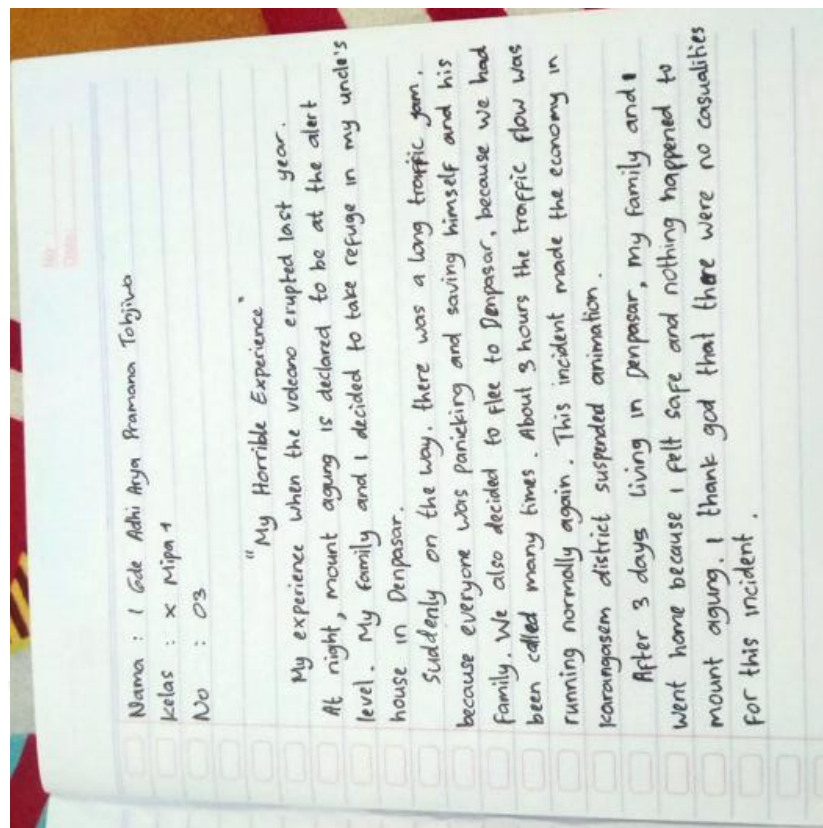 No
Date
Nama : I Gde Adhi Arya Pramana Tohjiwa
Kelas : X Mipa 1
No : 03
"My Horrible Experience"
My experience when the volcano erupted last year.
At night, mount agung is declared to be at the alert
level. My family and I decided to take refuge in my uncle's
house in Denpasar.
Suddenly on the way. there was a long traffic jam,
because everyone was panicking and saving himself and his
family. We also decided to flee to Denpasar, because we had
been called many times. About 3 hours the traffic flow was
running normally again. This incident made the economy in
karangasem district suspended animation.
After 3 days living in Denpasar, my family and I
went home because I felt safe and nothing happened to
mount agung. I thank god that there were no casualities
for this incident.